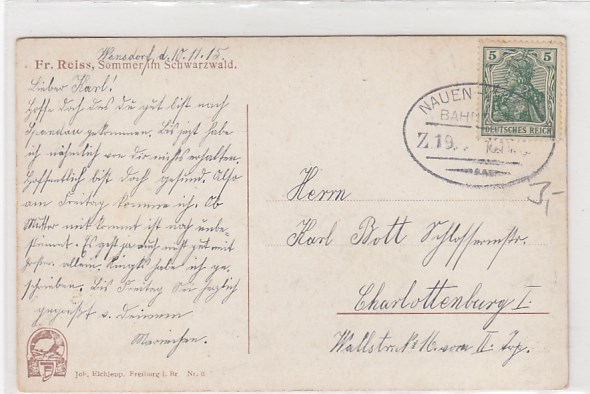 Wensdorf, d. 10.11.15.
Fr. Reiss, Sommer im Schwarzwald.
Lieber Karl!
Hoffe doch das du gut bist nach
Spandau gekommen. Bis jetzt habe
ich nähmlich von dir nichts erhalten.
Hoffentlich bist doch gesund. Also
am Freitag komme ich. Ob
Mutter mit kommt ist noch unbe-
stimmt. Es geht ja auch nicht gut mit
allem. habe ich ge-
schrieben. Bis Freitag sei herzlich
gegrüßt v. deinem
Mariechen.
Joh. Elchlepp, Freiburg i. Br Nr. 6
5 5
DEUTSCHES REICH
NAUEN
BAHN
Z.19
Herrn
Karl Bott Schlossermstr.
Charlottenburg I.
Wallstr. № 16. vorn II. Trp.
3,-